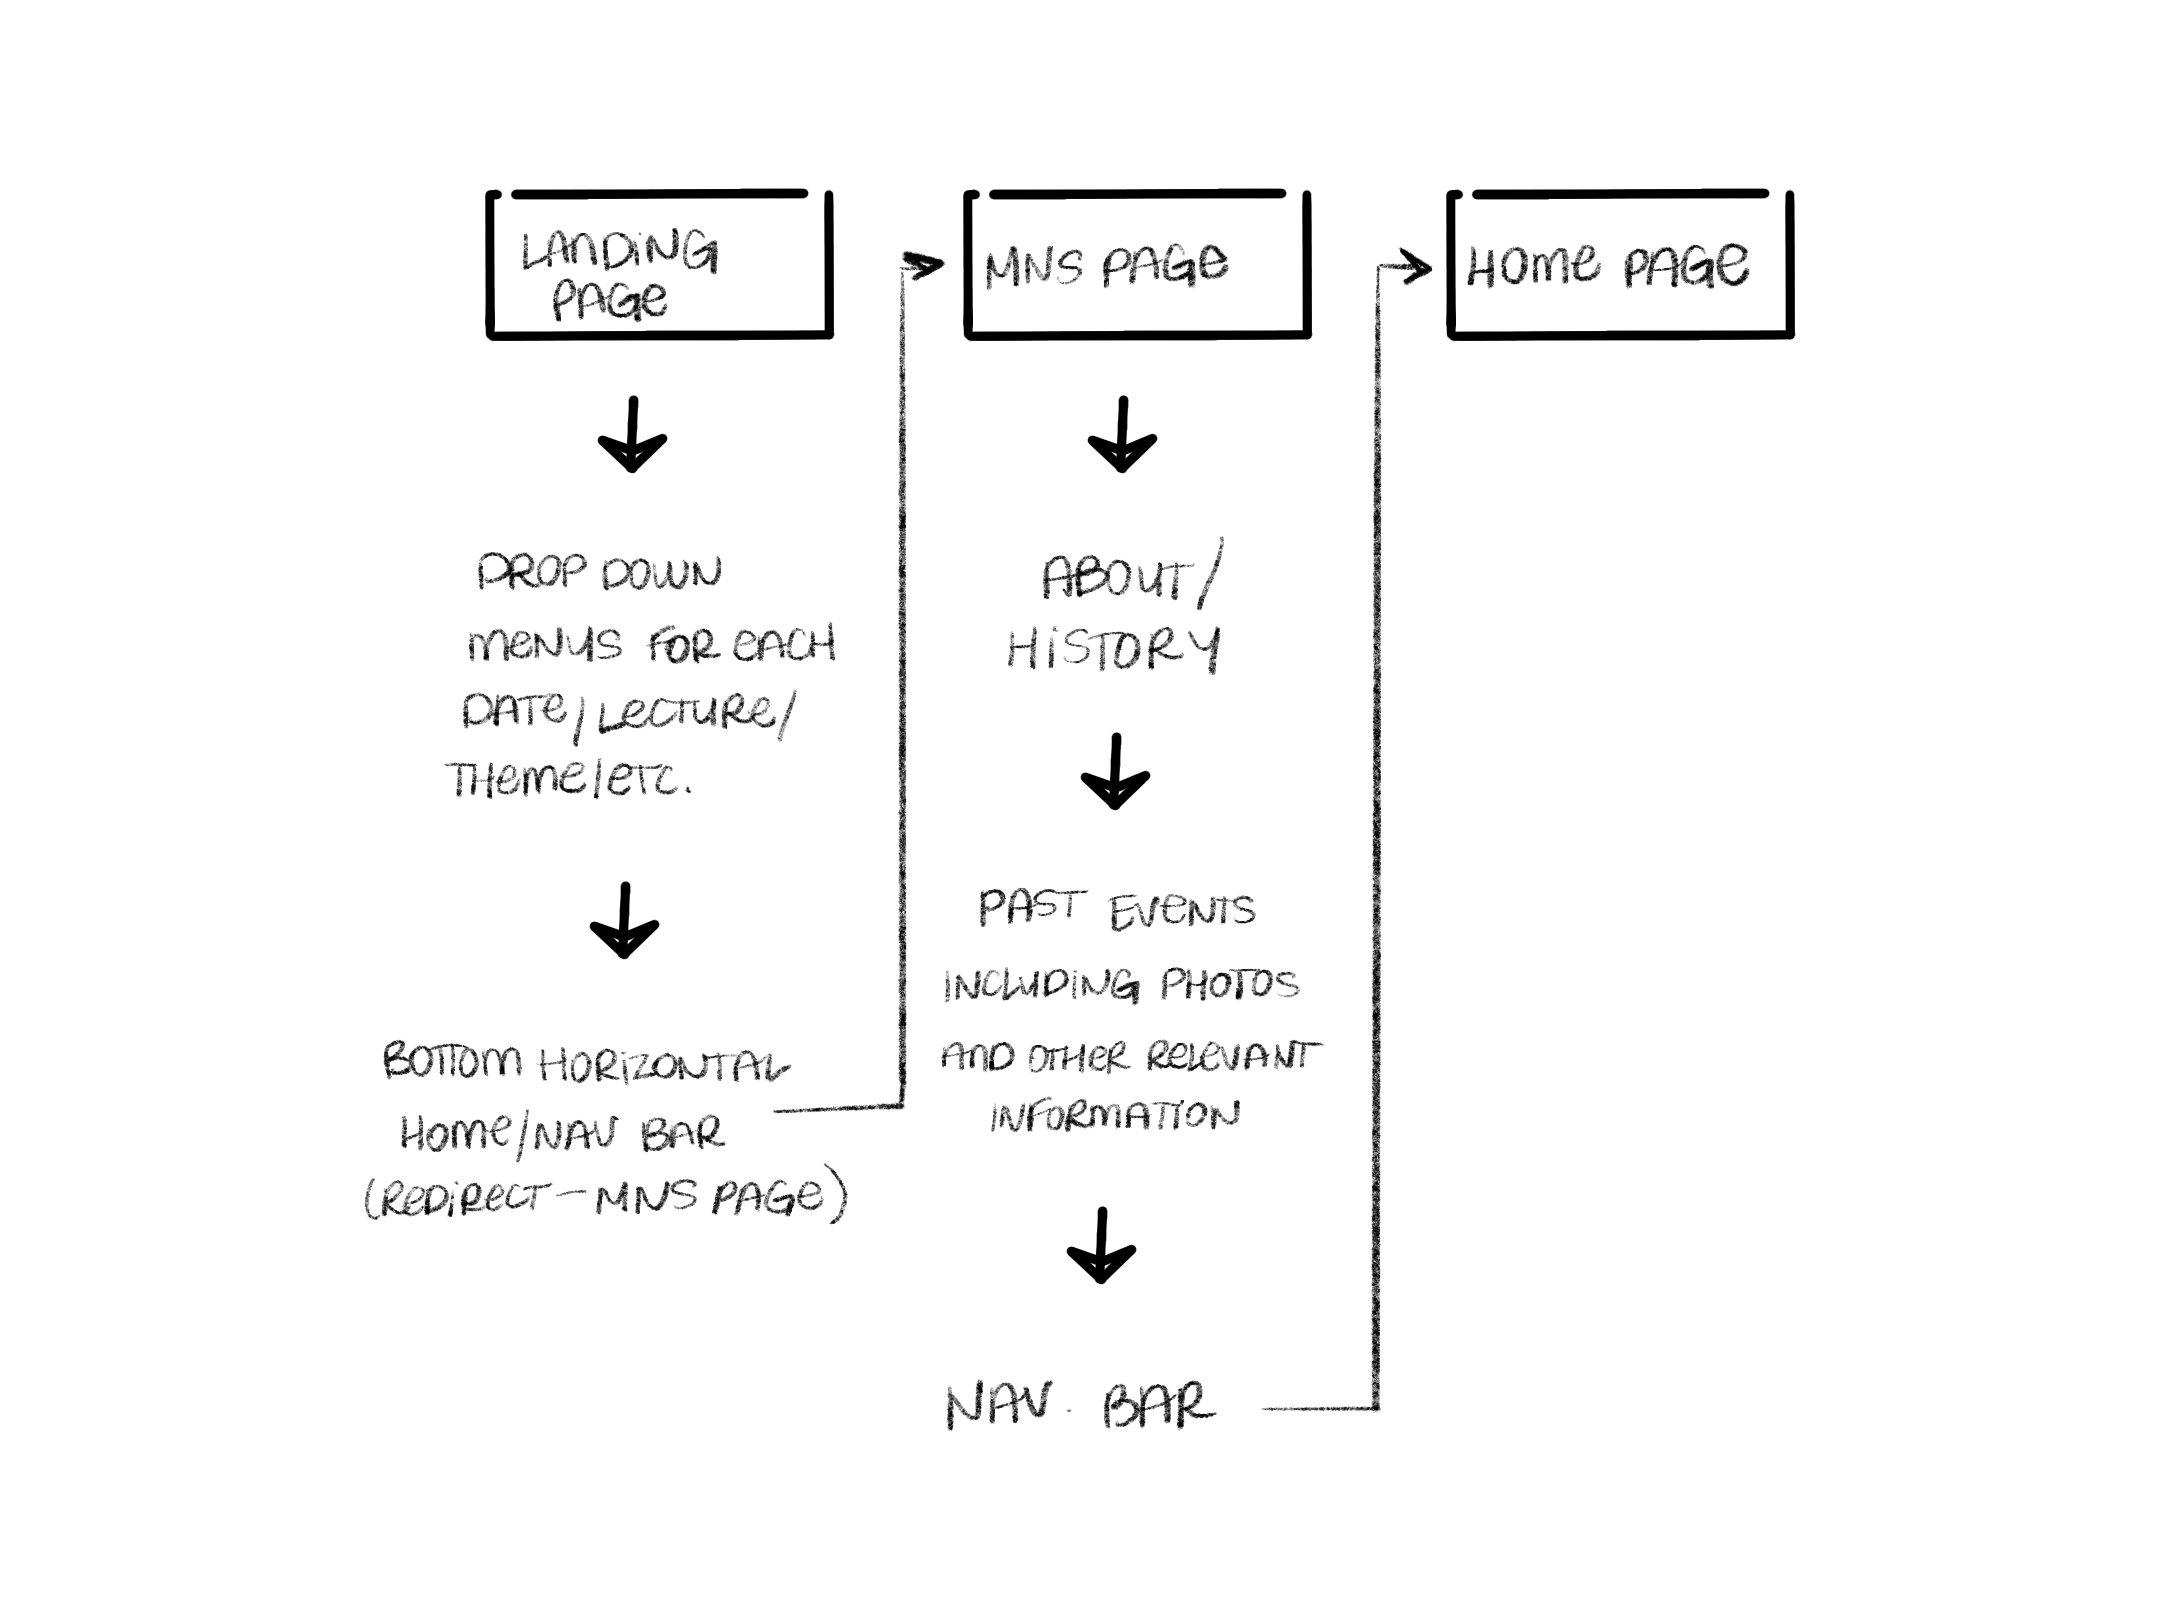 LANDING
PAGE
DROP DOWN
MENUS FOR EACH
DATE/LECTURE/
THEME/ETC.
BOTTOM HORIZONTAL
HOME/NAV BAR
(REDIRECT – MNS PAGE)
MNS PAGE
ABOUT/
HISTORY
PAST EVENTS
INCLUDING PHOTOS
AND OTHER RELEVANT
INFORMATION
NAV. BAR
HOME PAGE